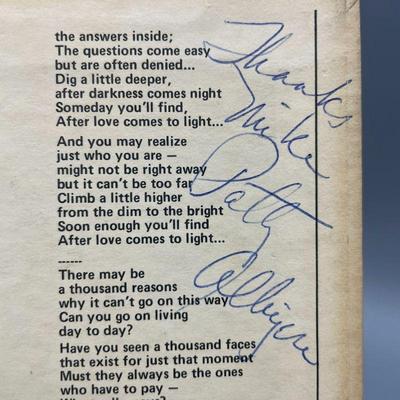 the answers inside;
The questions come easy
but are often denied...
Dig a little deeper,
after darkness comes night
Someday you'll find,
After love comes to light...
And you may realize
just who you are —
might not be right away
but it can't be too far
Climb a little higher
from the dim to the bright
Soon enough you'll find
After love comes to light...
------
There may be
a thousand reasons
why it can't go on this way
Can you go on living
day to day?
Have you seen a thousand faces
that exist for just that moment
Must they always be the ones
who have to pay —
Thanks
Mike
Patty